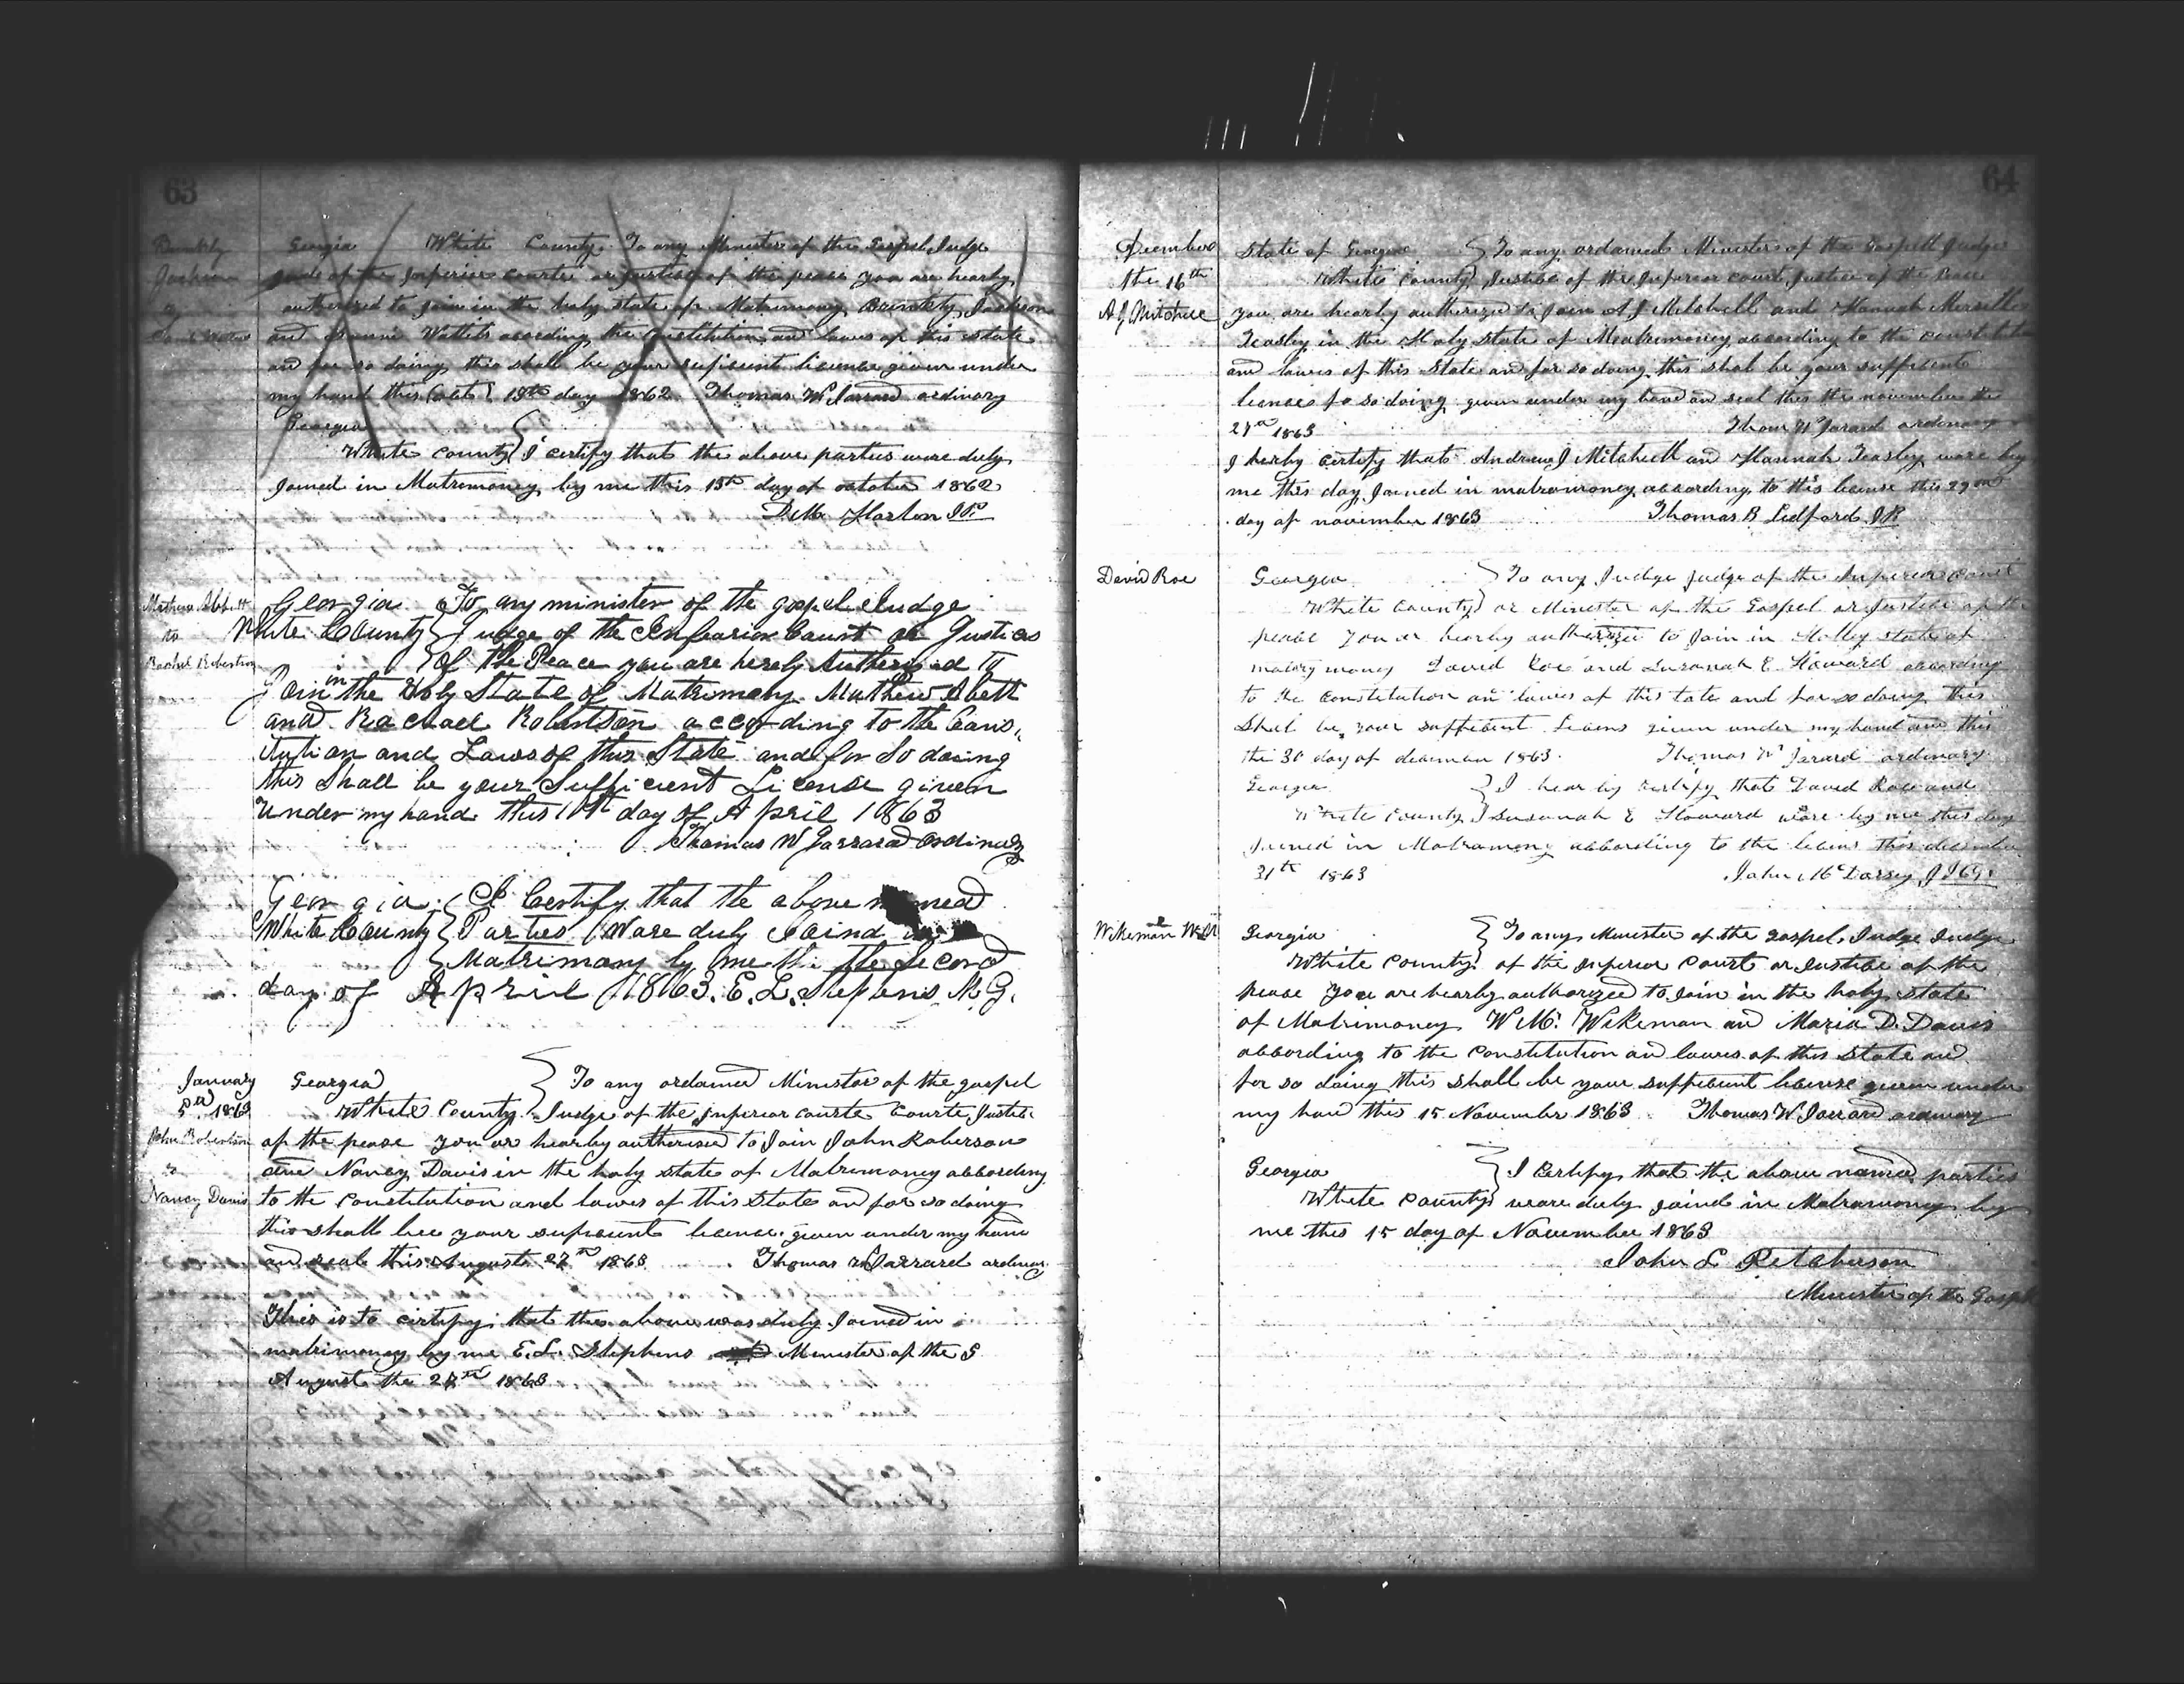 63
Brinkly
Jackson
to
Georgia White County. To any Minister of the Gospel, Judge
Judge of the Inferior Courte or Justice of the peace you are hearby
authorized to join in the holy state of Matrimoney Brinkly Jackson
and Wattels acording the Constitution and laws of this State
and for so doing this shall be your suficient licence given under
my hand this Octo 13th day 1862 Thomas W Jarrard ordinary
Georgia
White County } I certify that the above parties ware duly
Joined in Matrimoney by me this 15th day of october 1862
D. M. Harton J.P.
Mathew Abbett
to
Rachel Robertson
Georgia To any minister of the gospel Judge
White County } Judge of the Infearior Court or Justices
of the Peace you are hereby Authorized to
Join in the Holy State of Matrimony Mathew Abett
and Rachael Robertson according to the Cons,
tution and Laws of this State and for So doing
this Shall be your Sufficient License given
Under my hand this 1st day of April 1863
Thomas W Jarrard Ordinary
Georgia { I Certify that the above named
White County { Parties Ware duly Joind
Matrimany by me this the Second
day of April 1863. E. L. Stephens M. G.
January
5th 1863
John Robertson
to
Nancy Davis
Georgia } To any ordained Minister of the gospel
White County } Judge of the Inferior courte Courte Justic
of the pease you or hearby autherised to Join John Roberson
and Nancy Davis in the holy state of Matremoney abbording
to the Constitution and lawes of this State an for so doing
this shall bee your supisunt licence given under my hand
and seal this August 27th 1863 Thomas W Jarrard ordinary
This is to certify that the above was duly Joined in
matrimoney by me E. L. Stephens Minister of the G
August the 27th 1863
64
December
the 16th
A J Mitchell
State of Georgia } To any ordained Minister of the Gospell Judge
White County } Justice of the Inferior Court Justice of the Peace
you are hearby autherized to Join A J Mitchell and Hannah
Teasley in the Holy State of Matrimoney according to the constitution
and lawes of this State and for so doing this shal be your sufficent
licence fo so doing given under my hand an seal this the november the
27th 1863 Thom W Jarard ordinary
I herby Certify that Andrew J Mitchell an Hannah Teasley ware by
me this day Joined in matrimoney according to this license this 29
day of november 1863 Thomas B Ledford J P
David Roe
Georgia } To any Judge Judge of the Inferior Court
White County } or Minester of the Gospel or Justice of the
pease you or hearby autherized to Join in Holley state of
matrymoney David Roe and Susanah E Howard according
to the constitution an lawes of this tate and for so doing this
Shal be your sufficient given under my hand an this
the 30 day of 1863. Thomas W Jarard ordinary
Georgia } I hearby certify that David Roe and
White County } Susanah E Howard ware by me this day
Joined in Matrimoney abbording to the this december
31th 1863 John Mc Dorsey J I C.
Wikeman W M
Georgia } To any Minester of the Gospel, Judge Judge
White County } of the Inferior Court or Justice of the
pease you are hearby authorized to Join in the holy state
of Matrimoney W M. Wikeman an Maria D. Davis
abbording to the Constitution an lawes of this State an
for so doing this shall be your sufficiunt license given under
my hand this 15 November 1863 Thomas W Jarrard ordinary
Georgia } I Certify that the above named parties
White County } ware duly joind in Matrimoney by
me this 15 day of November 1863
John L Retcherson
Minester of the Gospel